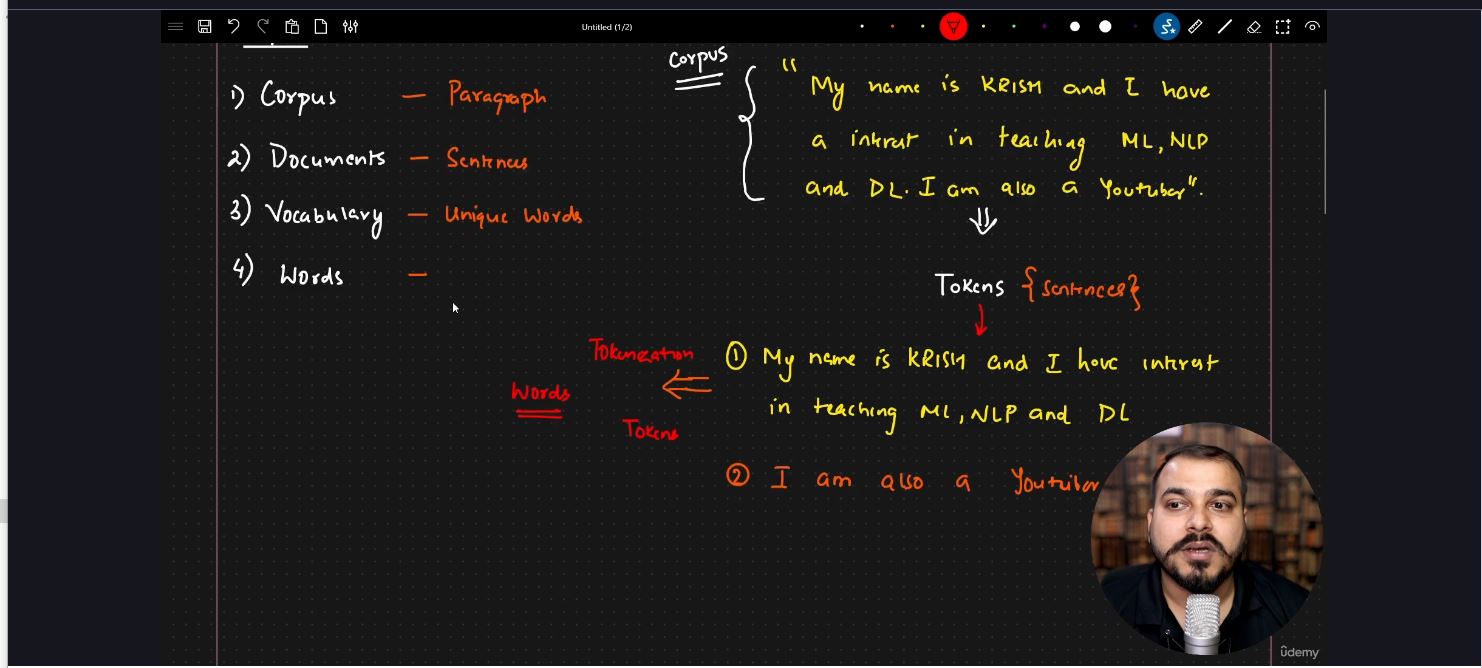 Untitled (1/2)
1) Corpus — Paragraph
2) Documents — Sentences
3) Vocabulary — Unique Words
4) Words —
Corpus
"My name is KRISH and I have
a intrest in teaching ML, NLP
and DL. I am also a Youtuber".
Tokens {sentences}
① My name is KRISH and I have intrest
in teaching ML, NLP and DL
② I am also a Youtuber
Tokenization
Words
Tokens
ûdemy